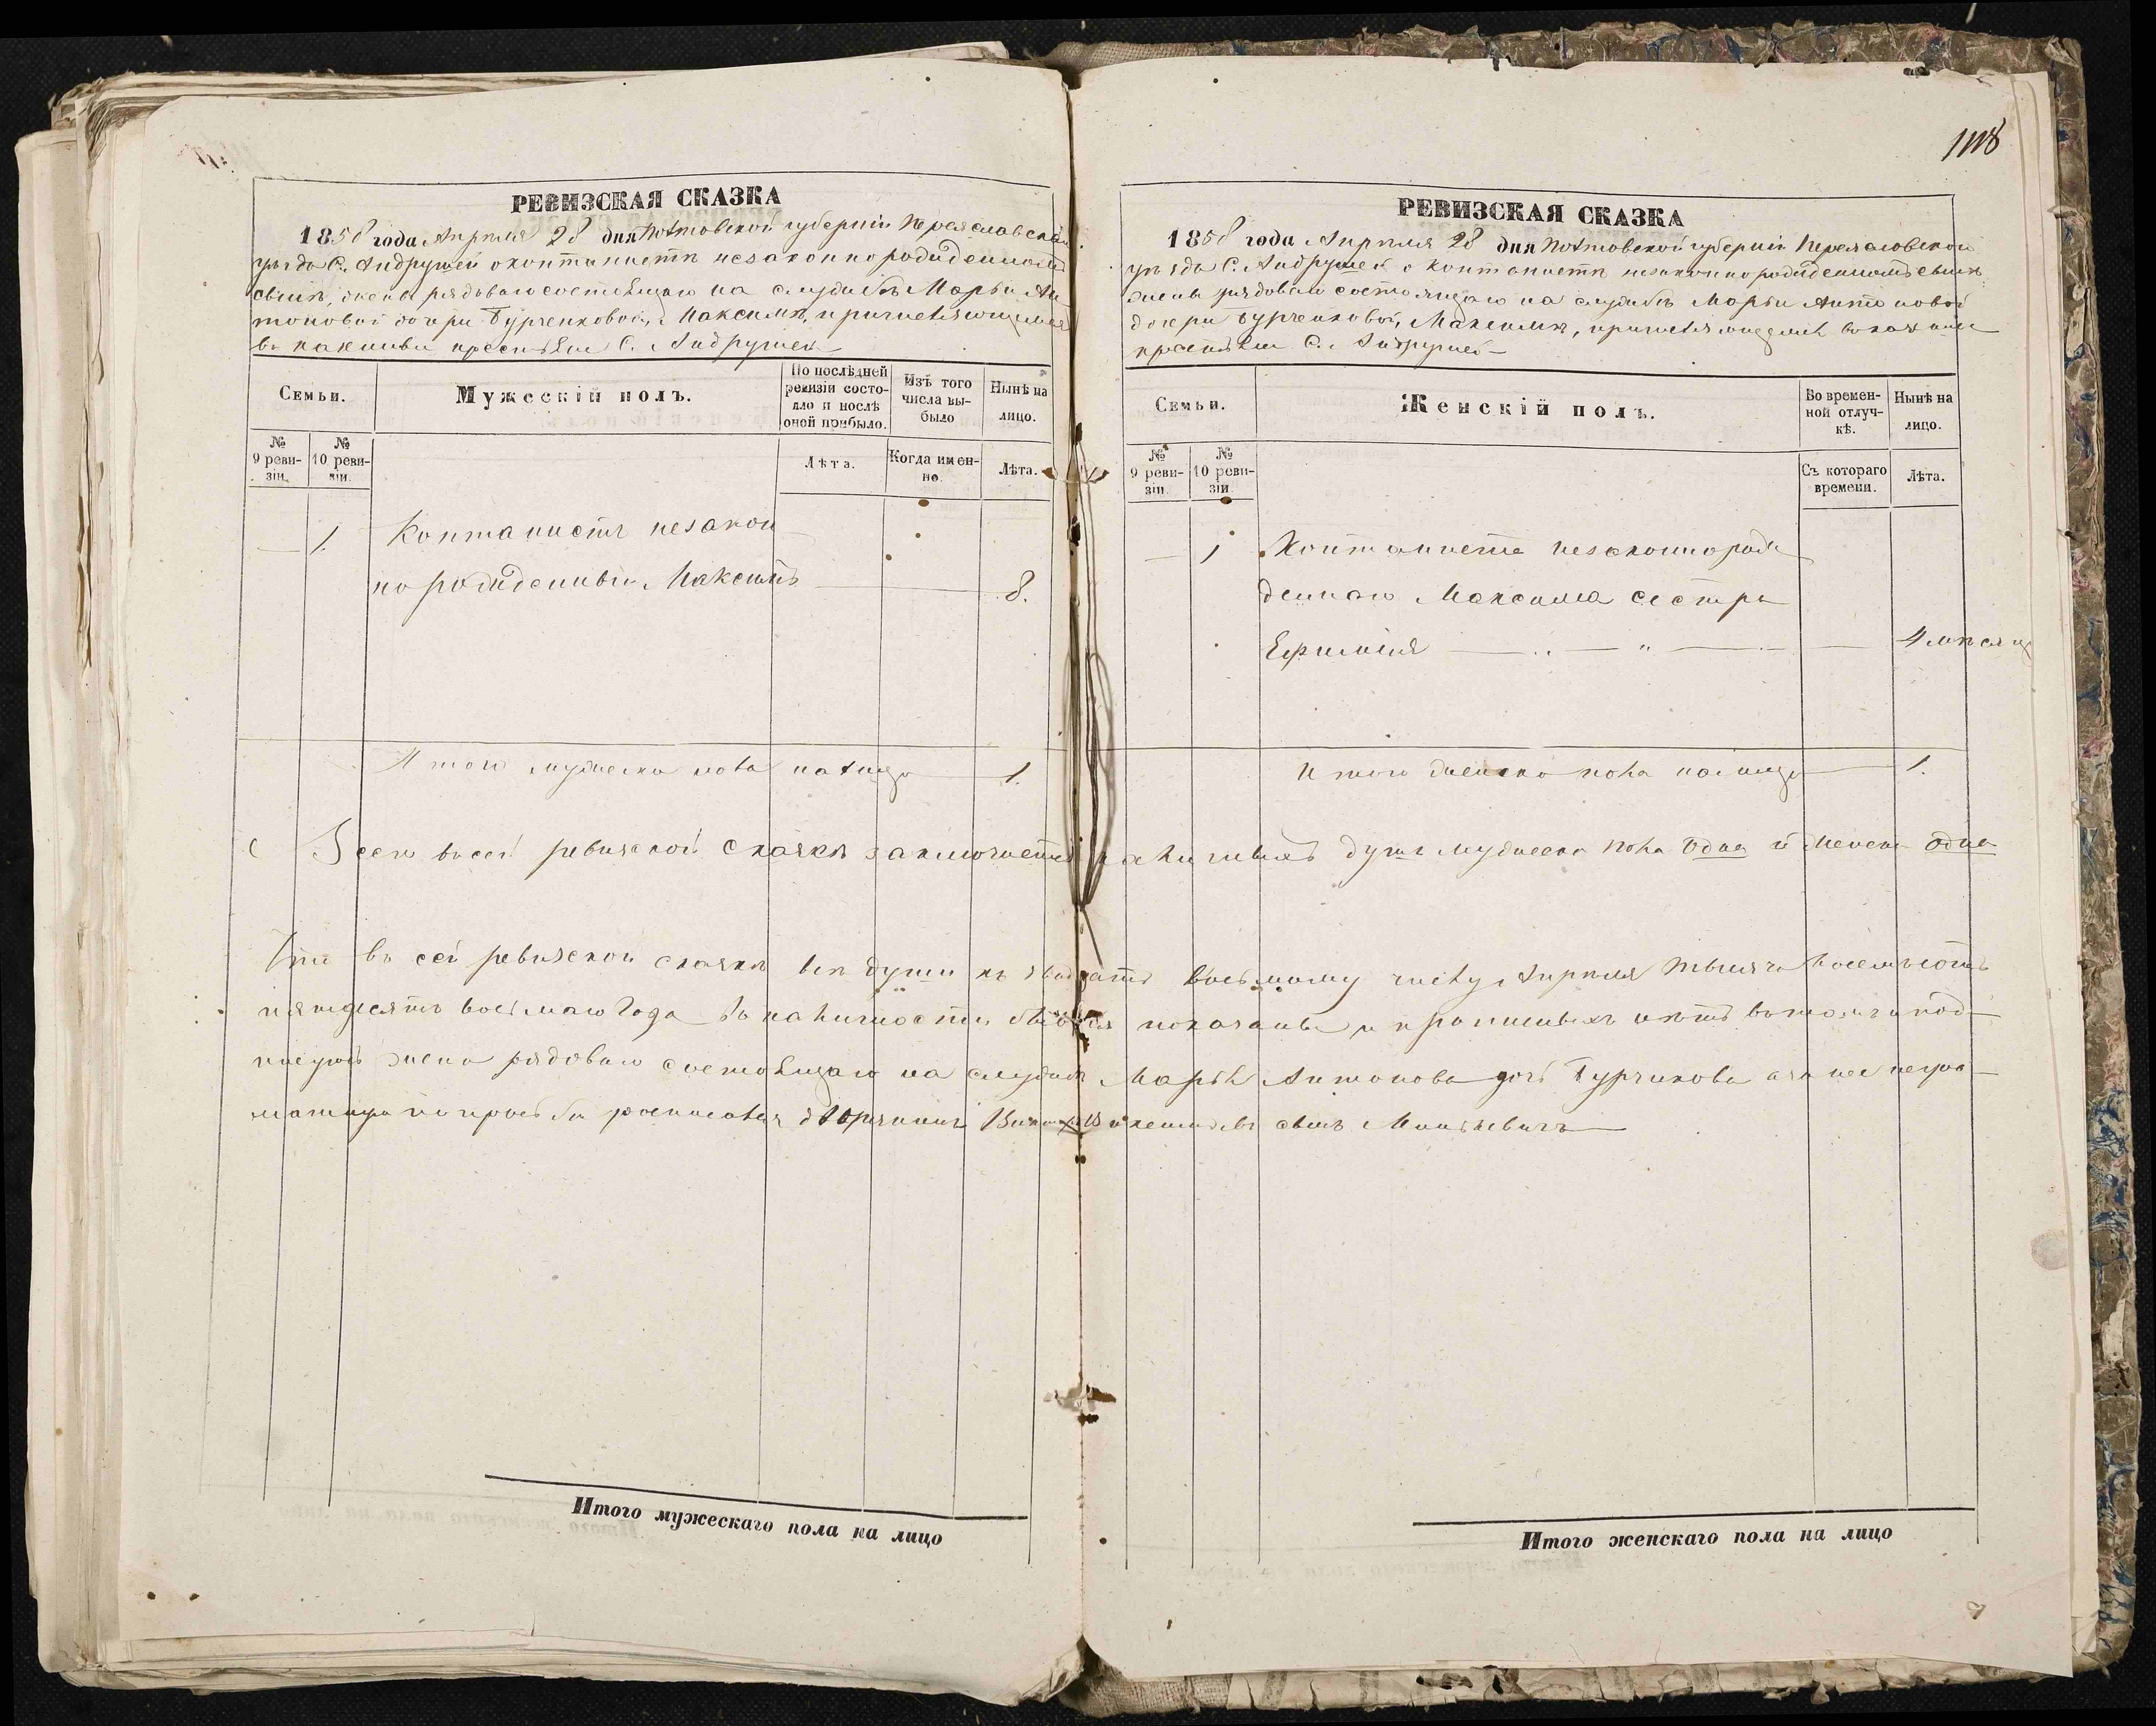 1118
РЕВИЗСКАЯ СКАЗКА
1858 года Апрѣля 28 дня Полтавской губерніи Переяславскаго
уѣзда С. Андрушей о контонистѣ незаконнорожденномъ
сынѣ, жены рядоваго состоящаго на службѣ Марьи Ан-
тоновой дочери Бурченковой, Максимѣ, причисляющемся
въ казенныи крестьяне С. Андрушей
Семьи.
Мужескій полъ.
По послѣдней ревизіи состояло и послѣ оной прибыло.
Изъ того числа выбыло
Нынѣ на лицо.
№ 9 ревизіи.
№ 10 ревизіи.
Лѣта.
Когда именно.
Лѣта.
1. Контонистъ незакон
норожденный Максимъ 8.
Итого мужеска пола налицо 1.
РЕВИЗСКАЯ СКАЗКА
1858 года Апрѣля 28 дня Полтавской губерніи Переяславскаго
уѣзда С. Андрушей о контонистѣ незаконнорожденномъ сынѣ
жены рядоваго состоящаго на службѣ Марьи Антоновой
дочери Бурченковой, Максимѣ, причисляющемся въ казенные
крестьяне С. Андрушей
Семьи.
Женскій полъ.
Во временной отлучкѣ.
Нынѣ на лицо.
№ 9 ревизіи.
№ 10 ревизіи.
Съ котораго времени.
Лѣта.
1 Контониста незаконнорож
деннаго Максима сестра
Ефимія 4 мѣсяц
Итого женска пола налицо 1.
Всего въ сей ревизской сказкѣ заключается наличныхъ душъ мужеска пола одна и женска одна
Что въ сей ревизской сказкѣ всѣ души къ двадцать восьмому числу Апрѣля тысяча восемьсотъ
пятдесятъ восьмаго года въ наличности показаны и прописныхъ нѣтъ въ томъ и под-
писуюсь жена рядоваго состоящаго на службѣ Марья Антонова дочь Бурчикова а за нее негра-
мотную по прозьбѣ росписался дворянинъ сынъ
Итого мужескаго пола на лицо
Итого женскаго пола на лицо